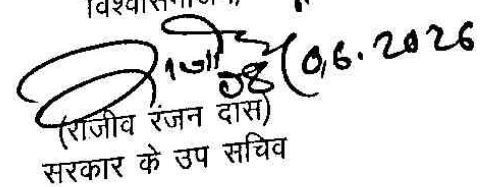 विश्वासभाजन
08/06.2026
(राजीव रंजन दास)
सरकार के उप सचिव